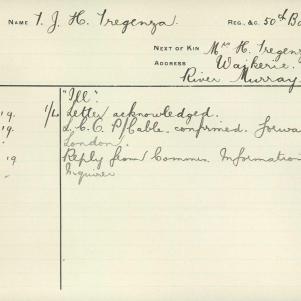 NAME T. J. H. Tregenza. REG. &C. 50th Ba
NEXT OF KIN Mrs H. Tregenz
ADDRESS Waikerie.
River Murray.
"Ill".
19. 1/L. Letter acknowledged.
19. L.C.C. P/Cable. confirmed. Forwa
London.
19 Reply from Commn. Information
Inquirer